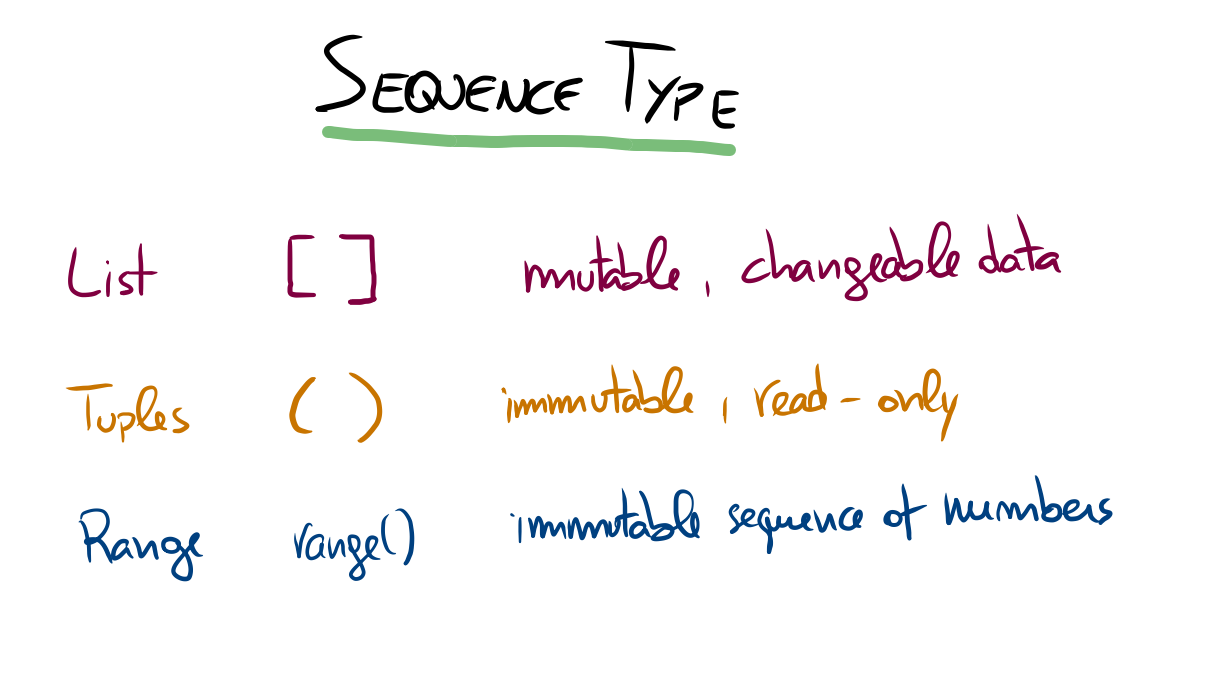 SEQUENCE TYPE
List [ ] mutable, changeable data
Tuples ( ) immutable, read-only
Range range() immutable sequence of numbers